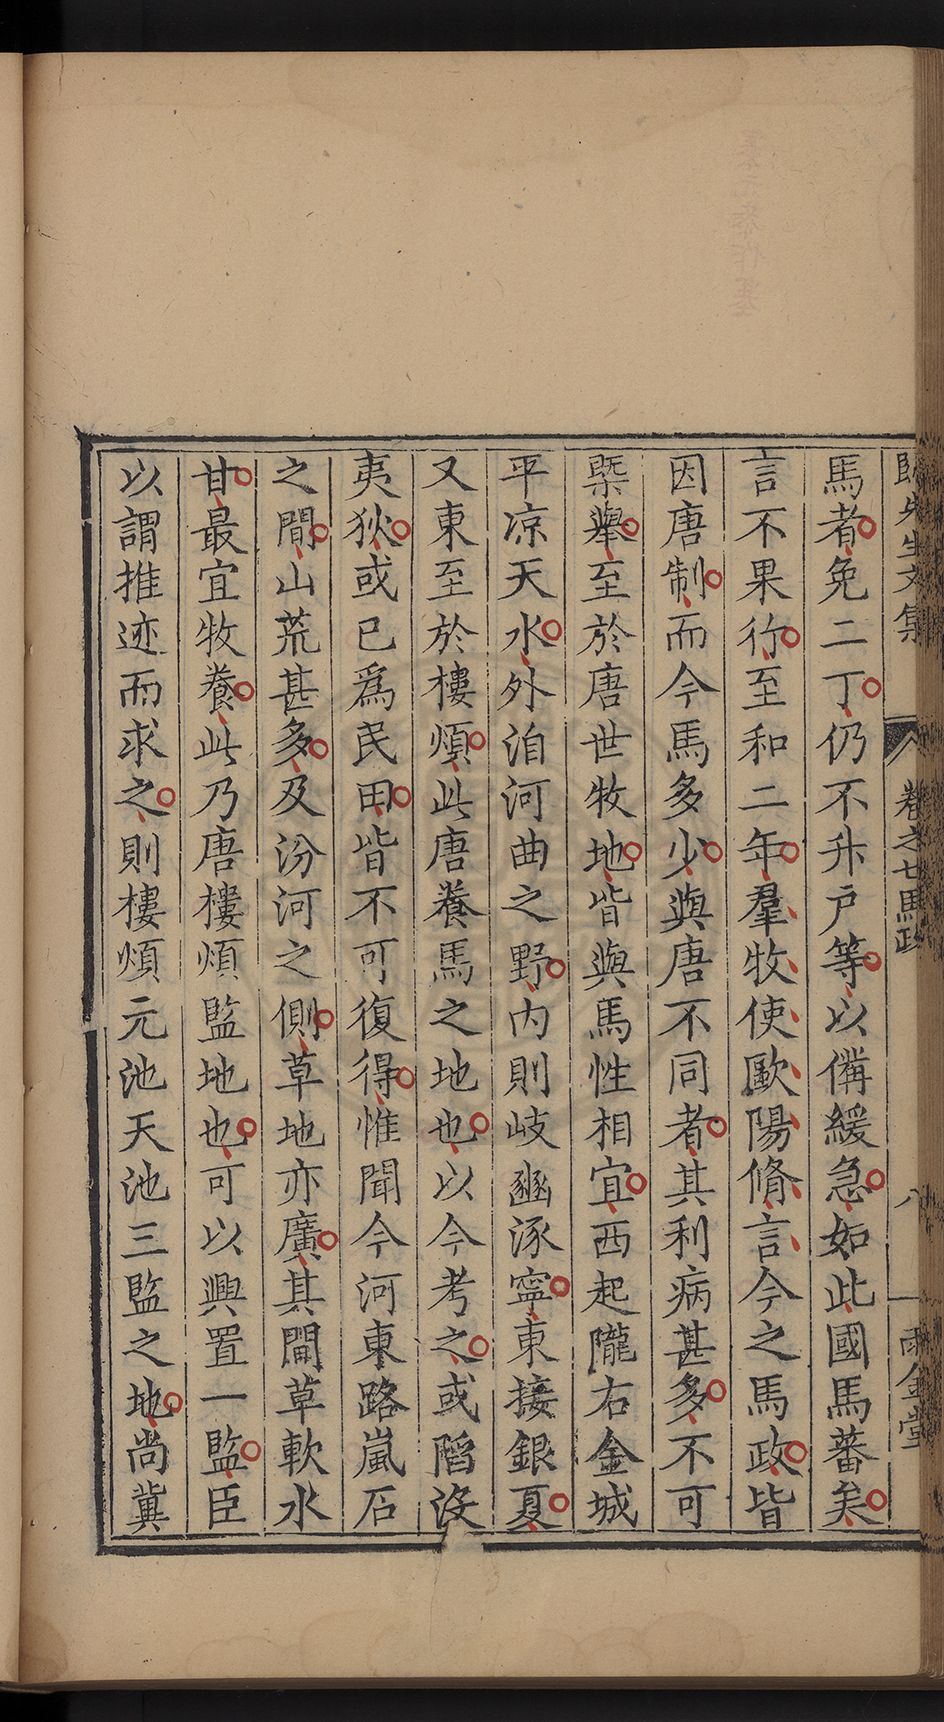 歸先生文集 卷之七馬政 八 雨金堂
馬者免二丁仍不升戶等以備緩急如此國馬蕃矣
言不果行至和二年羣牧使歐陽脩言今之馬政皆
因唐制而今馬多少與唐不同者其利病甚多不可
槩舉至於唐世牧地皆與馬性相宜西起隴右金城
平凉天水外洎河曲之野內則岐豳涿寧東接銀夏
又東至於樓煩此唐養馬之地也以今考之或陷沒
夷狄或已爲民田皆不可復得惟聞今河東路嵐石
之間山荒甚多及汾河之側草地亦廣其閒草軟水
甘最宜牧養此乃唐樓煩監地也可以興置一監臣
以謂推迹而求之則樓煩元池天池三監之地尚冀